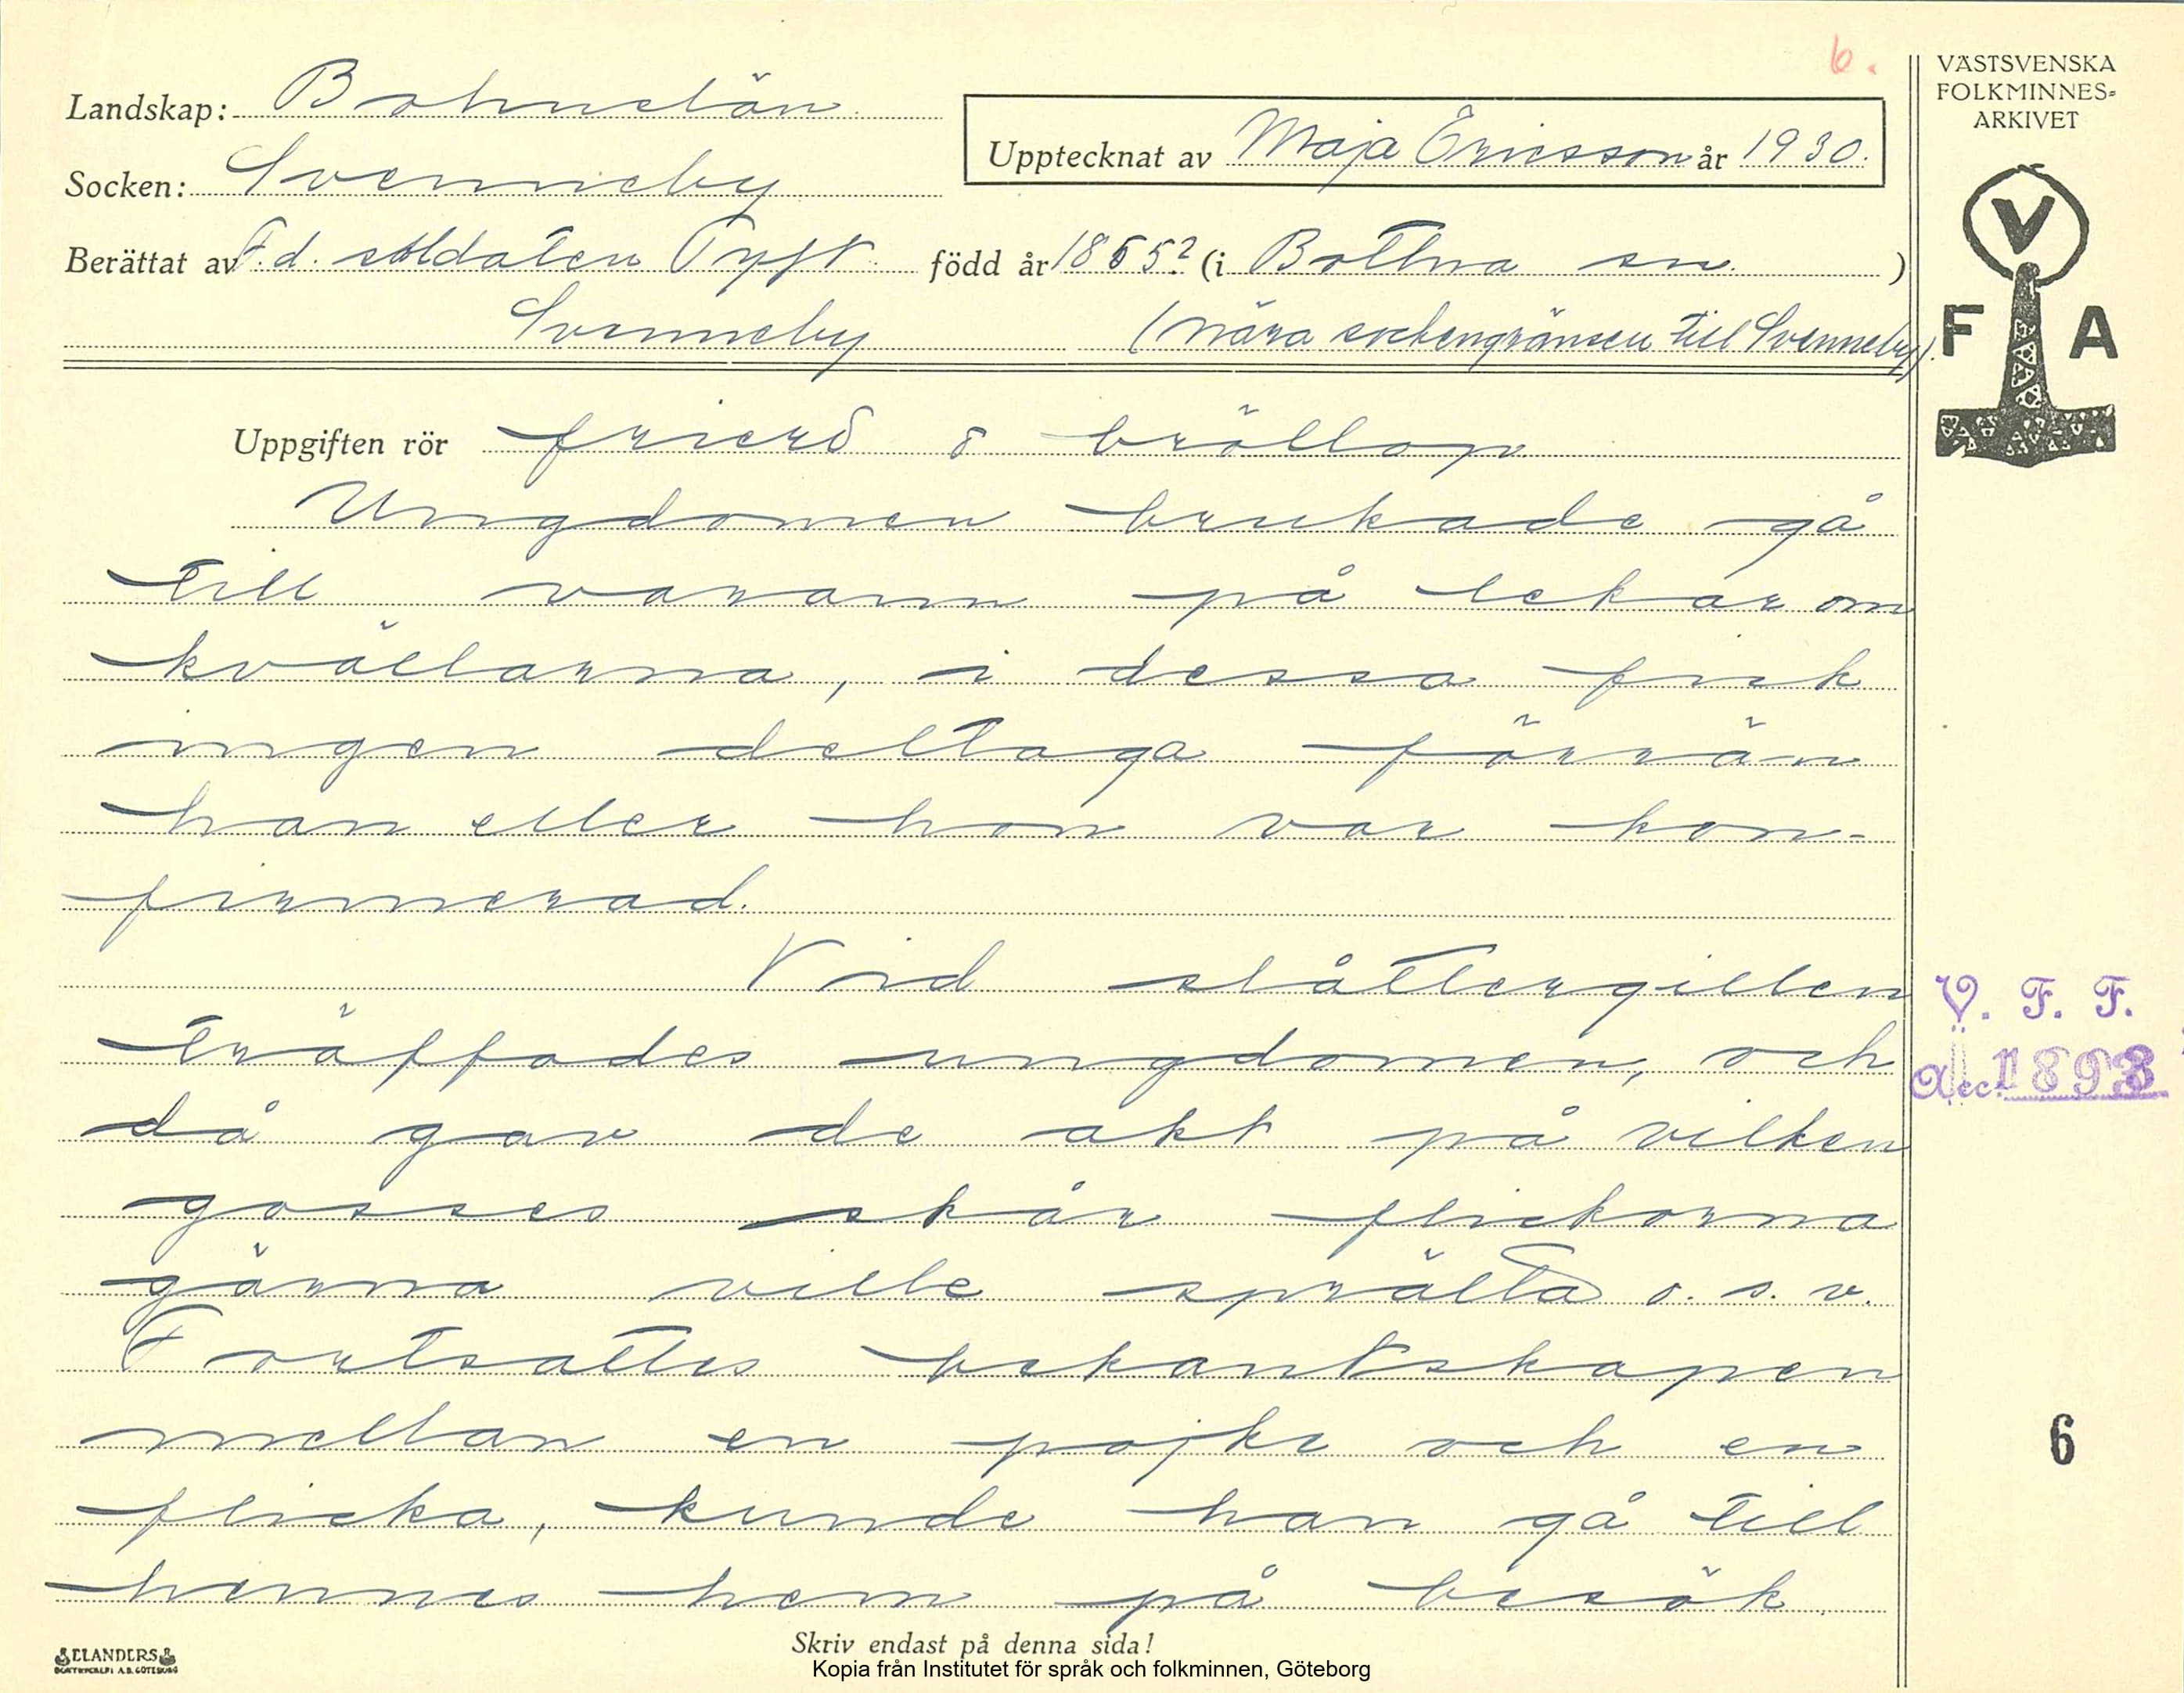 6.
VÄSTSVENSKA
FOLKMINNES-
ARKIVET
Landskap: Bohuslän
Upptecknat av Maja Ericsson år 1930.
Socken: Svenneby
Berättat av F.d. soldaten Tyft född år 1865? (i Bottna sn. )
Svenneby (nära sockengränsen till Svenneby).
V
F A
Uppgiften rör frieri & bröllop
Ungdomen brukade gå
till varann på lekar om
kvällarna, i dessa fick
ingen deltaga förrän
han eller hon var kon-
firmerad.
Vid slåttergillen
träffades ungdomen, och
då gav de akt på vilken
gosses skår flickorna
gärna ville sprätta o. s. v.
Fortsattes bekantskapen
mellan en pojke och en
flicka, kunde han gå till
hennes hem på besök
V. F. F.
Acc. 1893
6
ELANDERS
BOKTRYCKERI A.B. GÖTEBORG
Skriv endast på denna sida!
Kopia från Institutet för språk och folkminnen, Göteborg